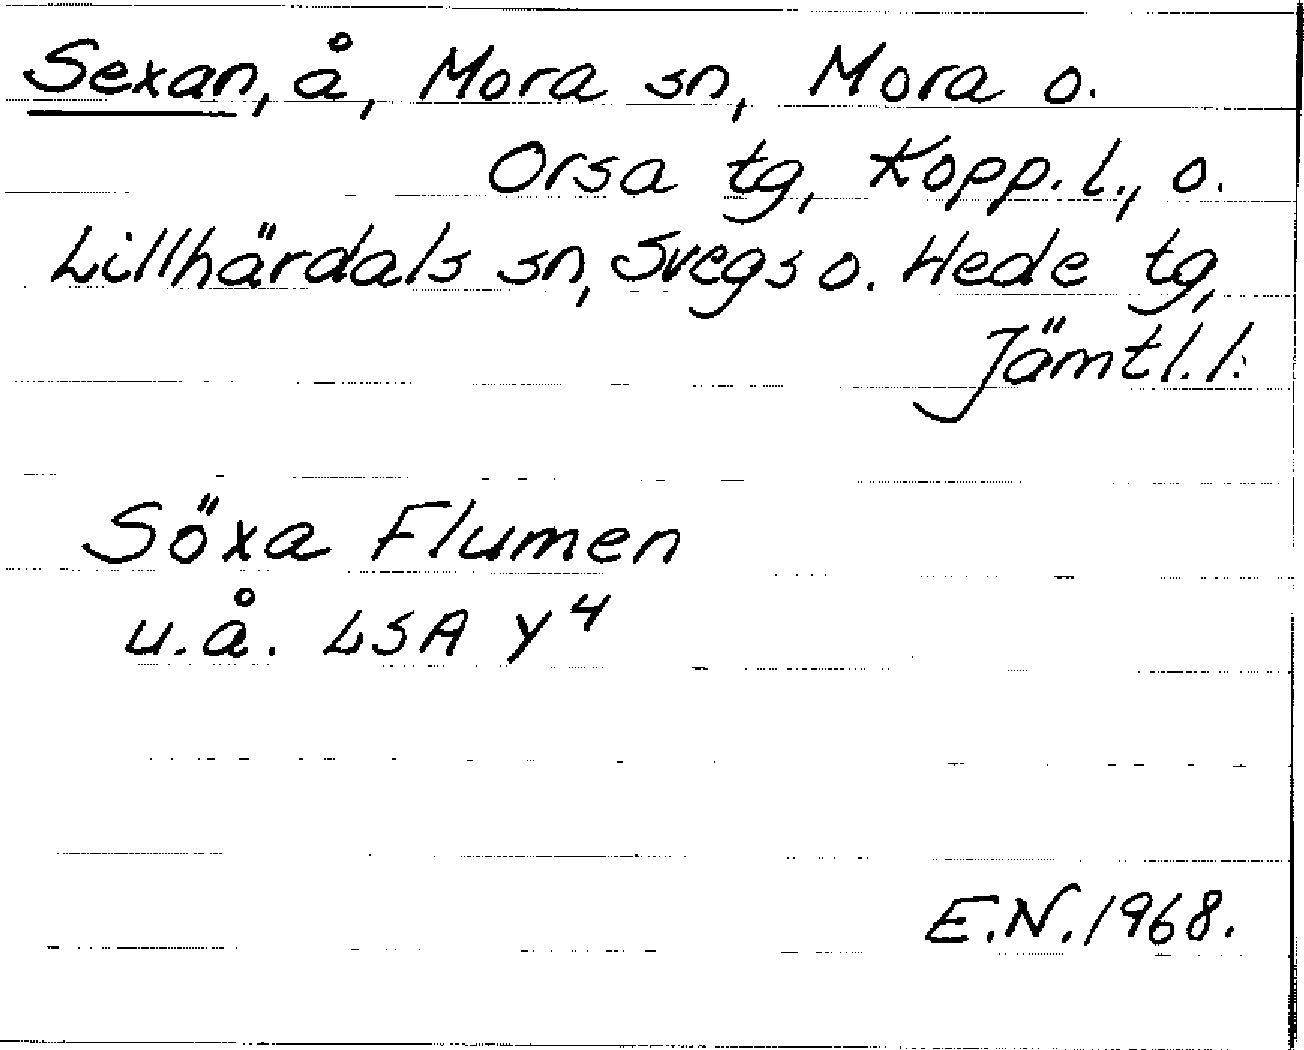 Sexan, å, Mora sn, Mora o.
Orsa tg, Kopp. l., o.
Lillhärdals sn, Svegs o. Hede tg,
Jämtl. l.
Söxa Flumen
u.å. LSA Y4
E.N. 1968.